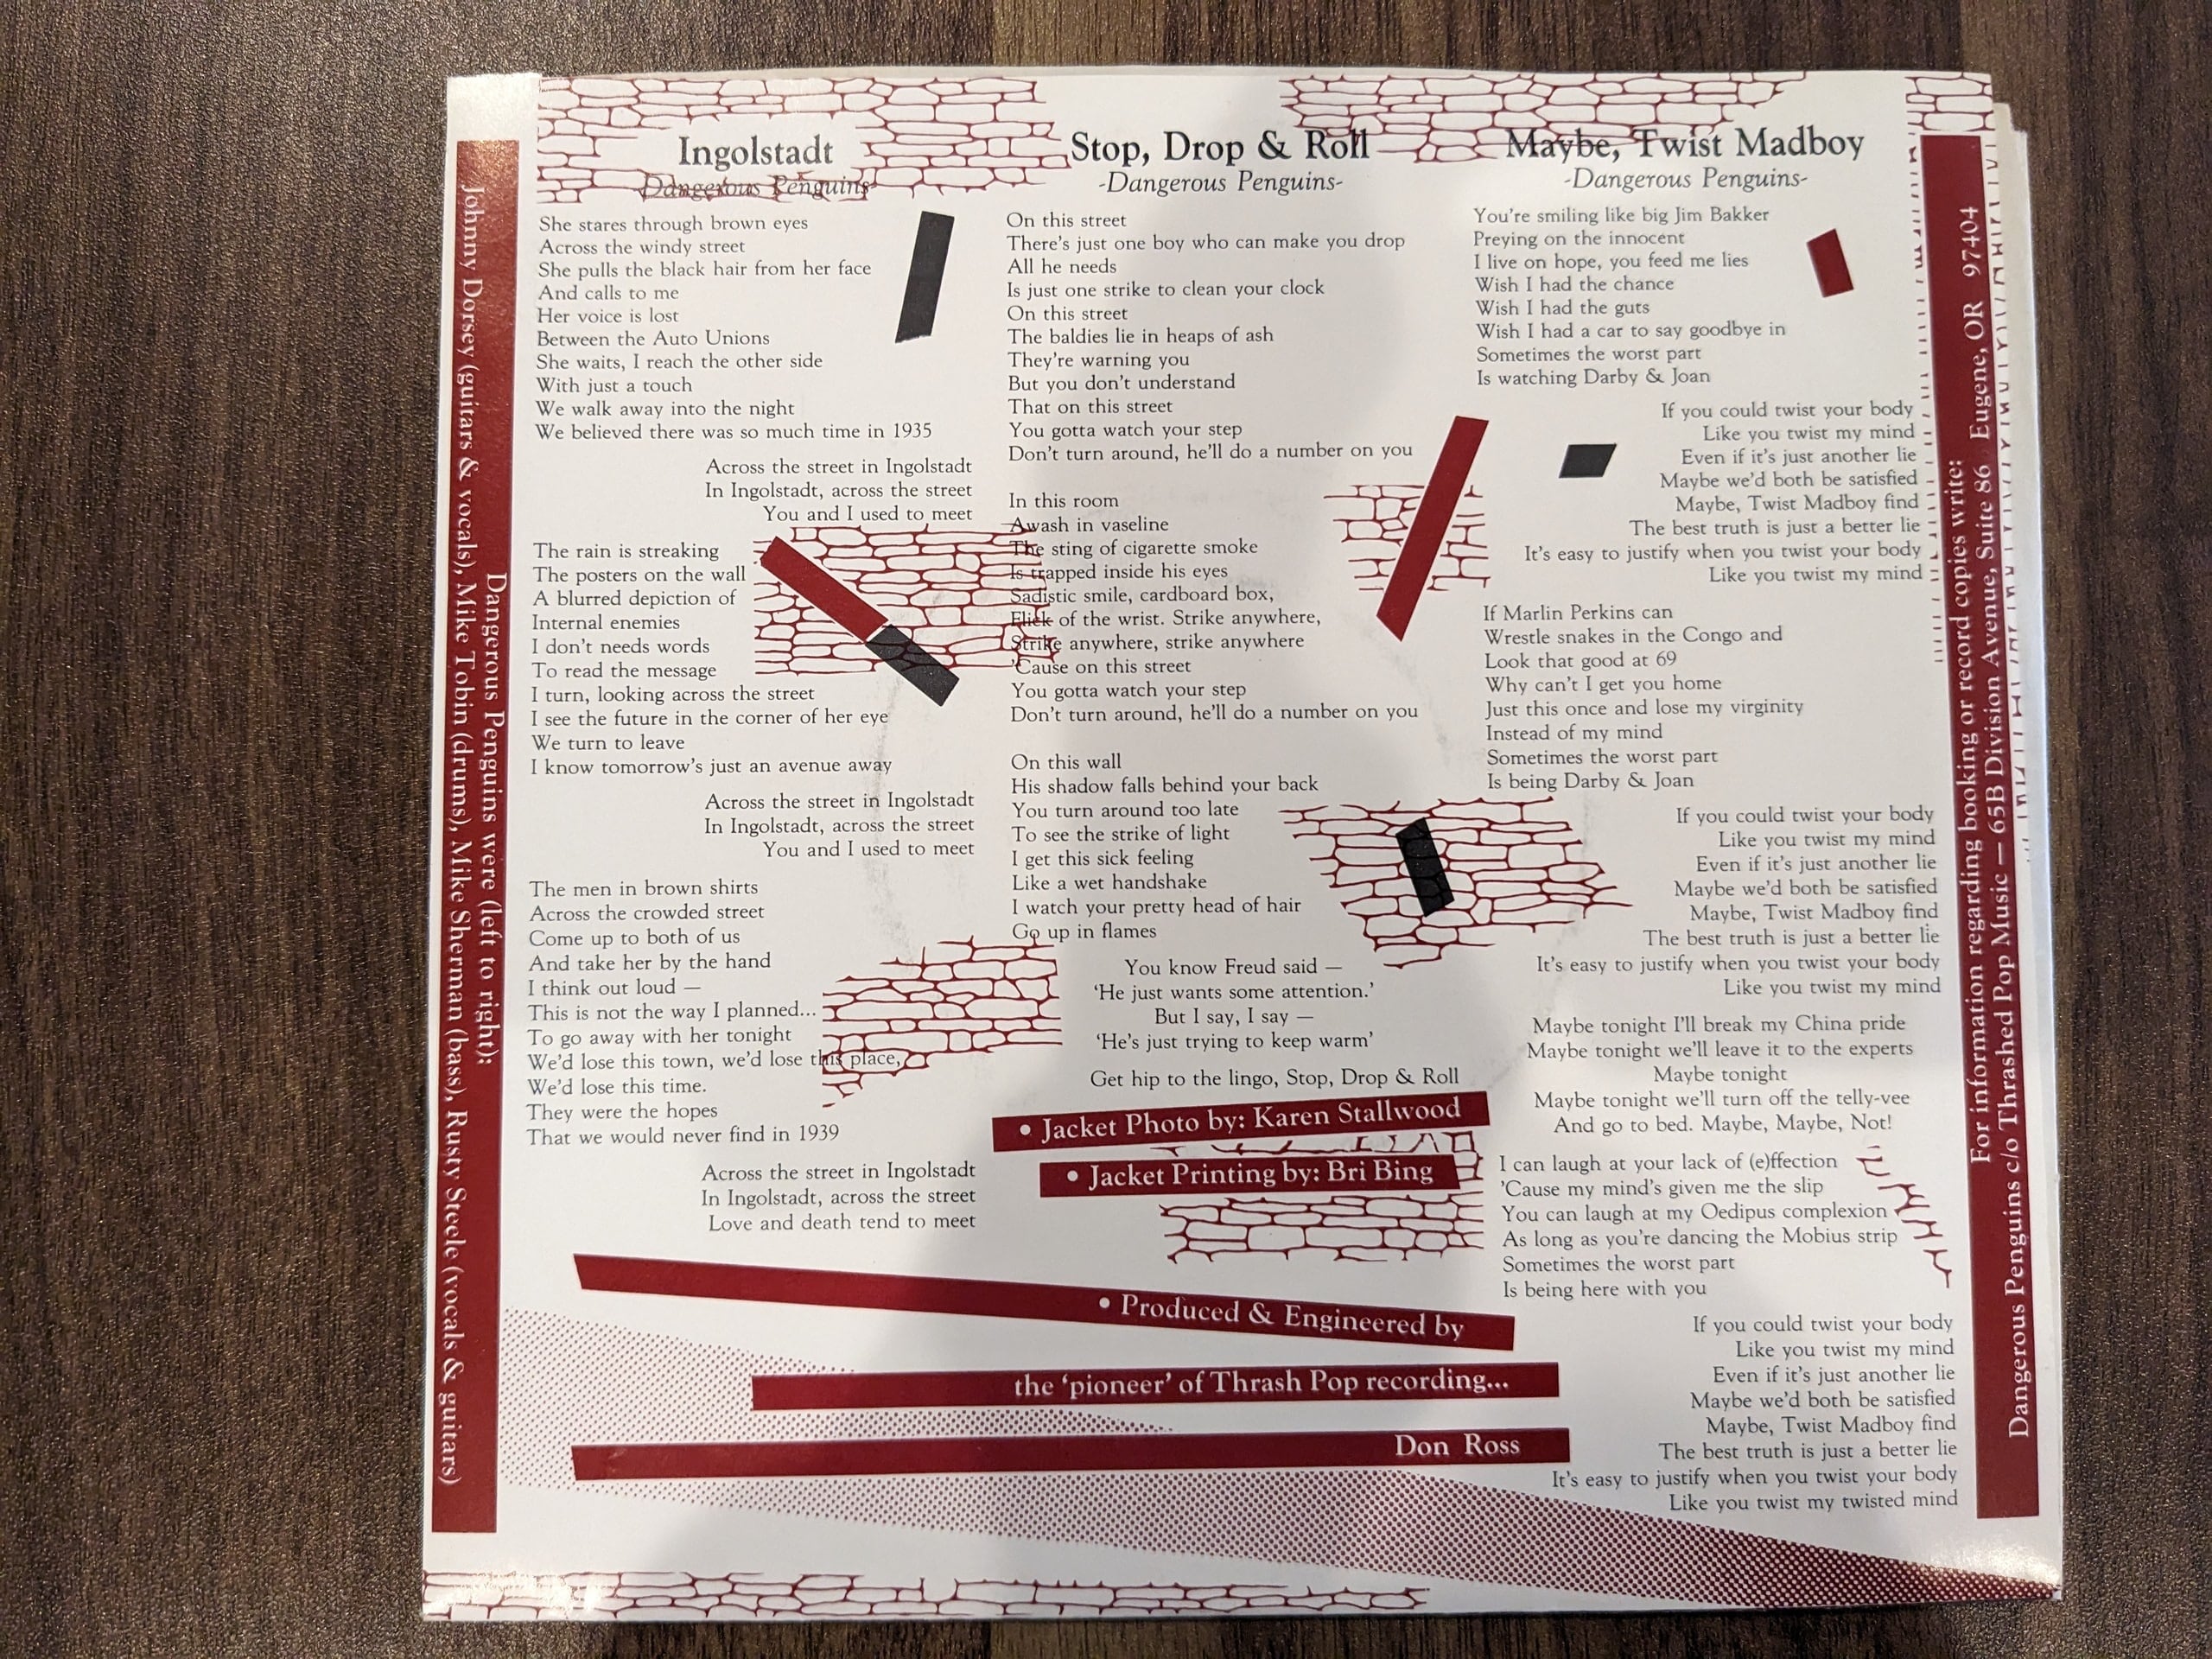 Johnny Dorsey (guitars & vocals), Mike Tobin (drums), Mike Sherman (bass), Rusty Steele (vocals & guitars)
Dangerous Penguins were (left to right):
Ingolstadt
-Dangerous Penguins-
She stares through brown eyes
Across the windy street
She pulls the black hair from her face
And calls to me
Her voice is lost
Between the Auto Unions
She waits, I reach the other side
With just a touch
We walk away into the night
We believed there was so much time in 1935
Across the street in Ingolstadt
In Ingolstadt, across the street
You and I used to meet
The rain is streaking
The posters on the wall
A blurred depiction of
Internal enemies
I don't needs words
To read the message
I turn, looking across the street
I see the future in the corner of her eye
We turn to leave
I know tomorrow's just an avenue away
Across the street in Ingolstadt
In Ingolstadt, across the street
You and I used to meet
The men in brown shirts
Across the crowded street
Come up to both of us
And take her by the hand
I think out loud —
This is not the way I planned...
To go away with her tonight
We'd lose this town, we'd lose this place,
We'd lose this time.
They were the hopes
That we would never find in 1939
Across the street in Ingolstadt
In Ingolstadt, across the street
Love and death tend to meet
Stop, Drop & Roll
-Dangerous Penguins-
On this street
There's just one boy who can make you drop
All he needs
Is just one strike to clean your clock
On this street
The baldies lie in heaps of ash
They're warning you
But you don't understand
That on this street
You gotta watch your step
Don't turn around, he'll do a number on you
In this room
Awash in vaseline
The sting of cigarette smoke
Is trapped inside his eyes
Sadistic smile, cardboard box,
Flick of the wrist. Strike anywhere,
Strike anywhere, strike anywhere
'Cause on this street
You gotta watch your step
Don't turn around, he'll do a number on you
On this wall
His shadow falls behind your back
You turn around too late
To see the strike of light
I get this sick feeling
Like a wet handshake
I watch your pretty head of hair
Go up in flames
You know Freud said —
'He just wants some attention.'
But I say, I say —
'He's just trying to keep warm'
Get hip to the lingo, Stop, Drop & Roll
• Jacket Photo by: Karen Stallwood
• Jacket Printing by: Bri Bing
• Produced & Engineered by
the 'pioneer' of Thrash Pop recording...
Don Ross
Maybe, Twist Madboy
-Dangerous Penguins-
You're smiling like big Jim Bakker
Preying on the innocent
I live on hope, you feed me lies
Wish I had the chance
Wish I had the guts
Wish I had a car to say goodbye in
Sometimes the worst part
Is watching Darby & Joan
If you could twist your body
Like you twist my mind
Even if it's just another lie
Maybe we'd both be satisfied
Maybe, Twist Madboy find
The best truth is just a better lie
It's easy to justify when you twist your body
Like you twist my mind
If Marlin Perkins can
Wrestle snakes in the Congo and
Look that good at 69
Why can't I get you home
Just this once and lose my virginity
Instead of my mind
Sometimes the worst part
Is being Darby & Joan
If you could twist your body
Like you twist my mind
Even if it's just another lie
Maybe we'd both be satisfied
Maybe, Twist Madboy find
The best truth is just a better lie
It's easy to justify when you twist your body
Like you twist my mind
Maybe tonight I'll break my China pride
Maybe tonight we'll leave it to the experts
Maybe tonight
Maybe tonight we'll turn off the telly-vee
And go to bed. Maybe, Maybe, Not!
I can laugh at your lack of (e)ffection
'Cause my mind's given me the slip
You can laugh at my Oedipus complexion
As long as you're dancing the Mobius strip
Sometimes the worst part
Is being here with you
If you could twist your body
Like you twist my mind
Even if it's just another lie
Maybe we'd both be satisfied
Maybe, Twist Madboy find
The best truth is just a better lie
It's easy to justify when you twist your body
Like you twist my twisted mind
For information regarding booking or record copies write:
Dangerous Penguins c/o Thrashed Pop Music — 65B Division Avenue, Suite 86 Eugene, OR 97404